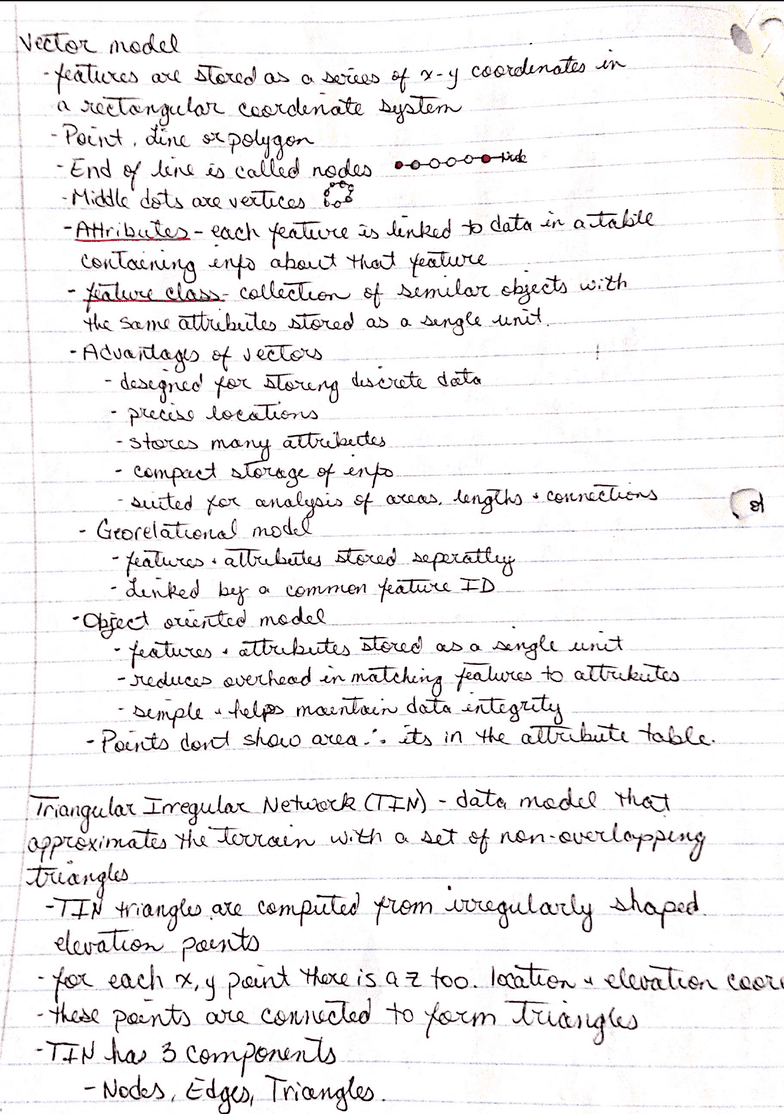 Vector model
- features are stored as a series of x-y coordinates in
a rectangular coordinate system
- Point, Line or polygon
- End of line is called nodes
- Middle dots are vertices
- Attributes - each feature is linked to data in a table
containing info about that feature
- feature class - collection of similar objects with
the same attributes stored as a single unit.
- Advantages of vectors
- designed for storing discrete data
- precise locations
- stores many attributes
- compact storage of info
- suited for analysis of areas, lengths + connections
- Georelational model
- features + attributes stored seperatley
- Linked by a common feature ID
- Object oriented model
- features + attributes stored as a single unit
- reduces overhead in matching features to attributes
- simple + helps maintain data integrity
- Points dont show area ∴ its in the attribute table.
Triangular Irregular Network (TIN) - data model that
approximates the terrain with a set of non-overlapping
triangles
- TIN triangles are computed from irregularly shaped
elevation points
- for each x, y point there is a z too. location + elevation coor
- these points are connected to form triangles
- TIN has 3 components
- Nodes, Edges, Triangles.